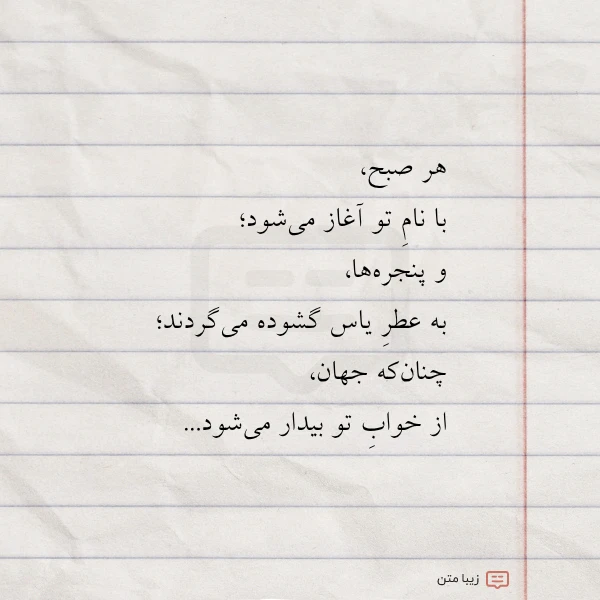 هر صبح،
با نامِ تو آغاز می‌شود؛
و پنجره‌ها،
به عطرِ یاس گشوده می‌گردند؛
چنان‌که جهان،
از خوابِ تو بیدار می‌شود...
زیبا متن